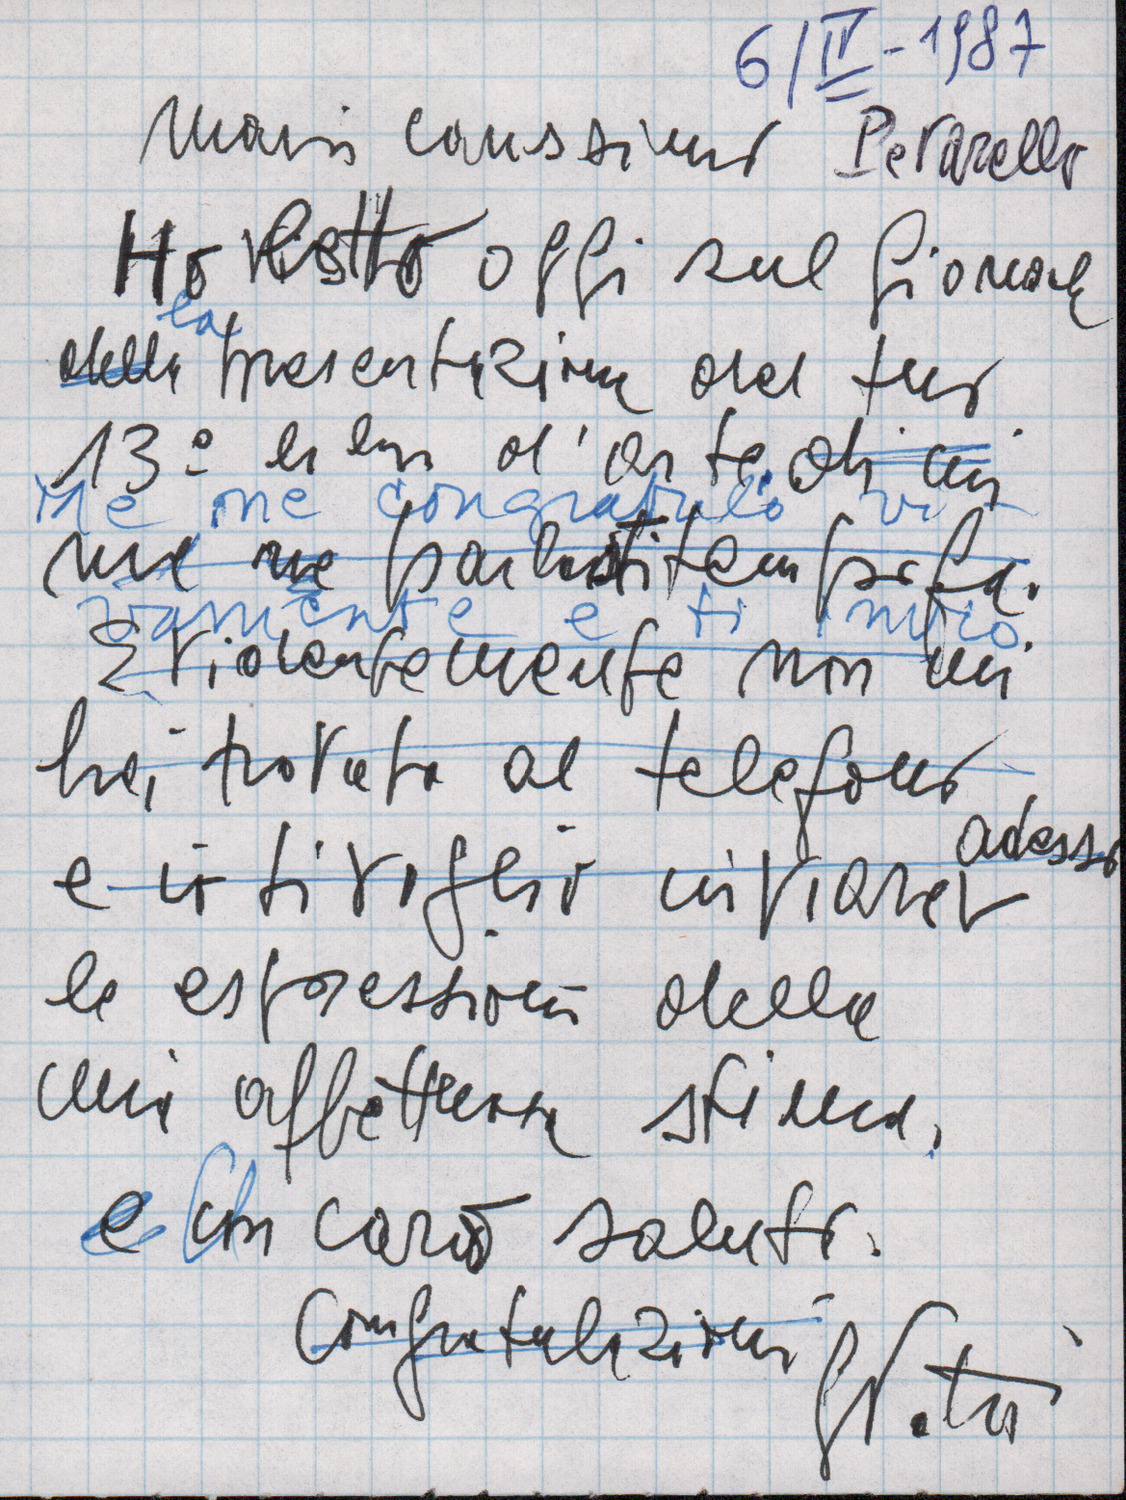 6/IV-1987
Mario carissimo Petrarello
Ho letto oggi sul giornale
la
della presentazione del tuo
13º libro d'arte di cui
Me ne congratulo vi-
me ne parlasti tempo fa.
vamente e ti invio
Evidentemente non mi
hai trovato al telefono
adesso
e io ti voglio inviare
le espressioni della
mia affettuosa stima,
e un caro saluto.
Congratulazioni